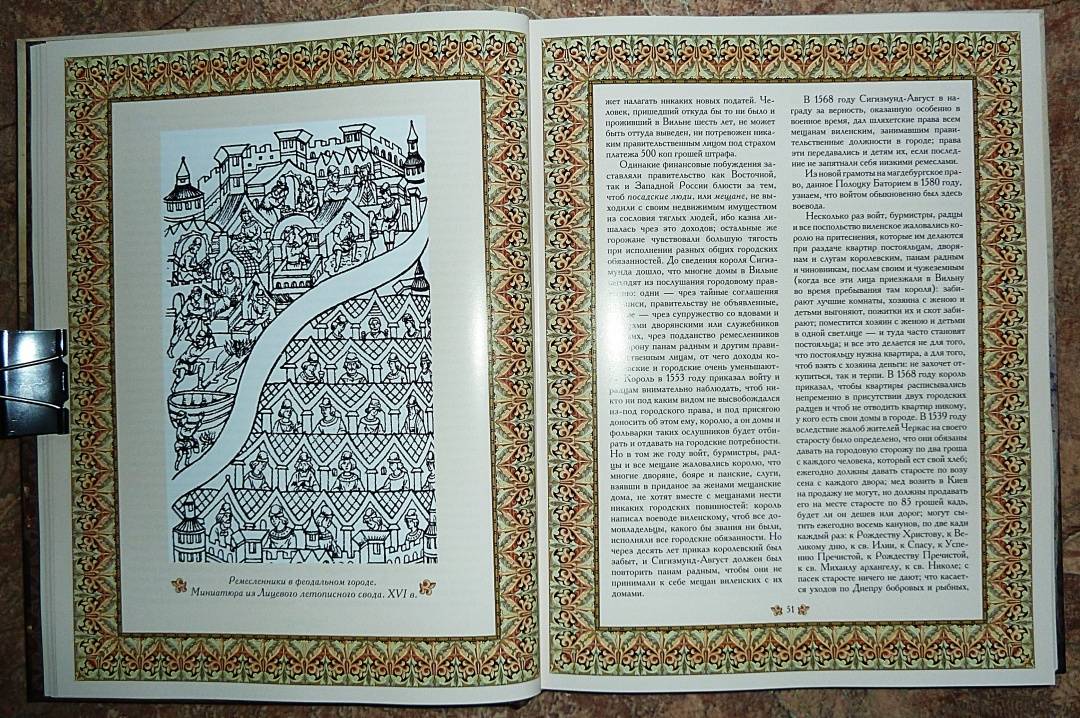 Ремесленники в феодальном городе.
Миниатюра из Лицевого летописного свода. XVI в.
жет налагать никаких новых податей. Че-
ловек, пришедший откуда бы то ни было и
проживший в Вильне шесть лет, не может
быть оттуда выведен, ни потревожен ника-
ким правительственным лицом под страхом
платежа 500 коп грошей штрафа.
Одинакие финансовые побуждения за-
ставляли правительство как Восточной,
так и Западной России блюсти за тем,
чтоб посадские люди, или мещане, не вы-
ходили с своим недвижимым имуществом
из сословия тяглых людей, ибо казна ли-
шалась чрез это доходов; остальные же
горожане чувствовали большую тягость
при исполнении разных общих городских
обязанностей. До сведения короля Сигиз-
мунда дошло, что многие домы в Вильне
выходят из послушания городовому прав-
одни — чрез тайные соглашения
правительству не объявленные,
— чрез супружество со вдовами и
дворянскими или служебников
чрез подданство ремесленников
панам радным и другим прави-
лицам, от чего доходы ко-
и городские очень уменьшают-
Король в 1553 году приказал войту и
радцам внимательно наблюдать, чтоб ни-
кто ни под каким видом не высвобождался
из-под городского права, и под присягою
доносить об этом ему, королю, а он домы и
фольварки таких ослушников будет отби-
рать и отдавать на городские потребности.
Но в том же году войт, бурмистры, рад-
цы и все мещане жаловались королю, что
многие дворяне, бояре и панские, слуги,
взявши в приданое за женами мещанские
дома, не хотят вместе с мещанами нести
никаких городских повинностей: король
написал воеводе виленскому, чтоб все до-
мовладельцы, какого бы звания ни были,
исполняли все городские обязанности. Но
через десять лет приказ королевский был
забыт, и Сигизмунд-Август должен был
повторить панам радным, чтобы они не
принимали к себе мещан виленских с их
домами.
В 1568 году Сигизмунд-Август в на-
граду за верность, оказанную особенно в
военное время, дал шляхетские права всем
мещанам виленским, занимавшим прави-
тельственные должности в городе; права
эти передавались и детям их, если послед-
ние не запятнали себя низкими ремеслами.
Из новой грамоты на магдебургское пра-
во, данное Полоцку Баторием в 1580 году,
узнаем, что войтом обыкновенно был здесь
воевода.
Несколько раз войт, бурмистры, радцы
и все поспольство виленское жаловались ко-
ролю на притеснения, которые им делаются
при раздаче квартир постояльцам, дворя-
нам и слугам королевским, панам радным
и чиновникам, послам своим и чужеземным
(когда все эти лица приезжали в Вильну
во время пребывания там короля): заби-
рают лучшие комнаты, хозяина с женою и
детьми выгоняют, пожитки их и скот заби-
рают; поместится хозяин с женою и детьми
в одной светлице — и туда часто становят
постояльца; и все это делается не для того,
что постояльцу нужна квартира, а для того,
чтоб взять с хозяина деньги: не захочет от-
купиться, так и терпи. В 1568 году король
приказал, чтобы квартиры расписывались
непременно в присутствии двух городских
радцев и чтоб не отводить квартир никому,
у кого есть свои домы в городе. В 1539 году
вследствие жалоб жителей Черкас на своего
старосту было определено, что они обязаны
давать на городовую сторожу по два гроша
с каждого человека, который ест свой хлеб;
ежегодно должны давать старосте по возу
сена с каждого двора; мед возить в Киев
на продажу не могут, но должны продавать
его на месте старосте по 85 грошей кадь,
будет ли он дешев или дорог; могут сы-
тить ежегодно восемь канунов, по две кади
каждый раз: к Рождеству Христову, к Ве-
ликому дню, к св. Илии, к Спасу, к Успе-
нию Пречистой, к Рождеству Пречистой,
к св. Михаилу архангелу, к св. Николе; с
пасек старосте ничего не дают; что касает-
ся уходов по Днепру бобровых и рыбных,
51